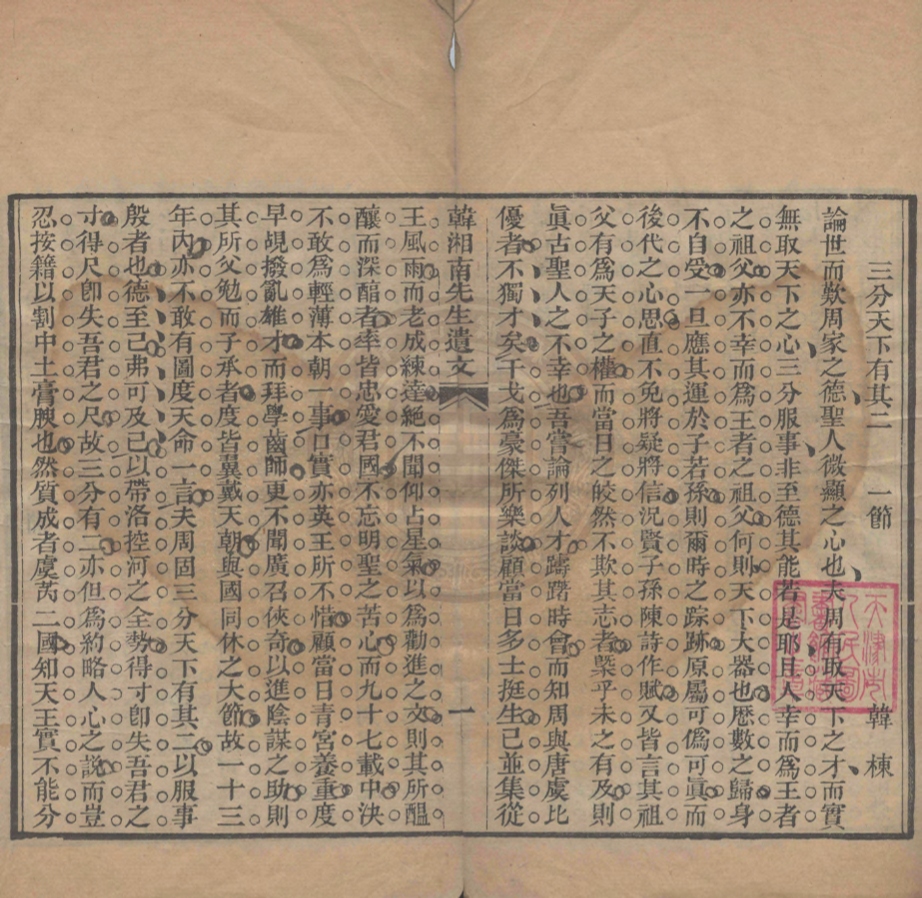 三分天下有其二　一節　韓棟
論世而歎周家之德聖人微顯之心也夫周有取天下之才而實
無取天下之心三分服事非至德其能若是耶且人幸而爲王者
之祖父亦不幸而爲王者之祖父何則天下大器也歷數之歸身
不自受一旦應其運於子若孫則爾時之踪跡原屬可僞可眞而
後代之心思直不免將疑將信況賢子孫陳詩作賦又皆言其祖
父有爲天子之權而當日之皎然不欺其志者槩乎未之有及則
眞古聖人之不幸也吾嘗論列人才躊躇時會而知周與唐虞比
優者不獨才矣干戈爲豪傑所樂談顧當日多士挺生已並集從
韓湘南先生遺文　一
王風雨而老成練達絕不聞仰占星氣以爲勸進之文則其所醞
釀而深醅者率皆忠愛君國不忘明聖之苦心而九十七載中決
不敢爲輕薄本朝一事口實亦英王所不惜顧當日青宮養重度
早覘撥亂雄才而拜學齒師更不聞廣召俠奇以進陰謀之助則
其所父勉而子承者度皆翼戴天朝與國同休之大節故一十三
年內亦不敢有圖度天命一言夫周固三分天下有其二以服事
殷者也德至已弗可及已以帶洛控河之全勢得寸卽失吾君之
寸得尺卽失吾君之尺故三分有二亦但爲約略人心之說而豈
忍按籍以割中土膏腴也然質成者虞芮二國知天王實不能分
天津市人民圖書館藏書